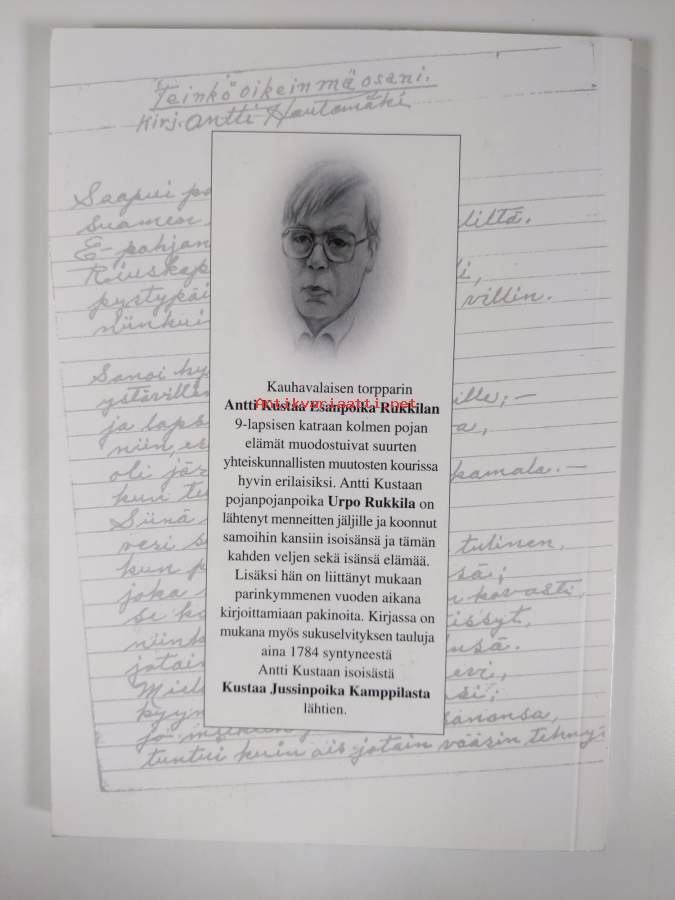 Teinkö oikein mä osani.
Kirj. Antti Hautamäki
Saapui
E-pohjan
villin.
ystäville
ja laps
niin, e
oli jär kamala.—
kun tu
Siinä
veri s tulinen,
kun p sä;
joka kovasti,
niink
jotai
Miel si;
tuntui kuin ois jotain väärin tehny
Kauhavalaisen torpparin
Antti Kustaa Esanpoika Rukkilan
Antikvariaatti.net
9-lapsisen katraan kolmen pojan
elämät muodostuivat suurten
yhteiskunnallisten muutosten kourissa
hyvin erilaisiksi. Antti Kustaan
pojanpojanpoika Urpo Rukkila on
lähtenyt menneitten jäljille ja koonnut
samoihin kansiin isoisänsä ja tämän
kahden veljen sekä isänsä elämää.
Lisäksi hän on liittänyt mukaan
parinkymmenen vuoden aikana
kirjoittamiaan pakinoita. Kirjassa on
mukana myös sukuselvityksen tauluja
aina 1784 syntyneestä
Antti Kustaan isoisästä
Kustaa Jussinpoika Kamppilasta
lähtien.